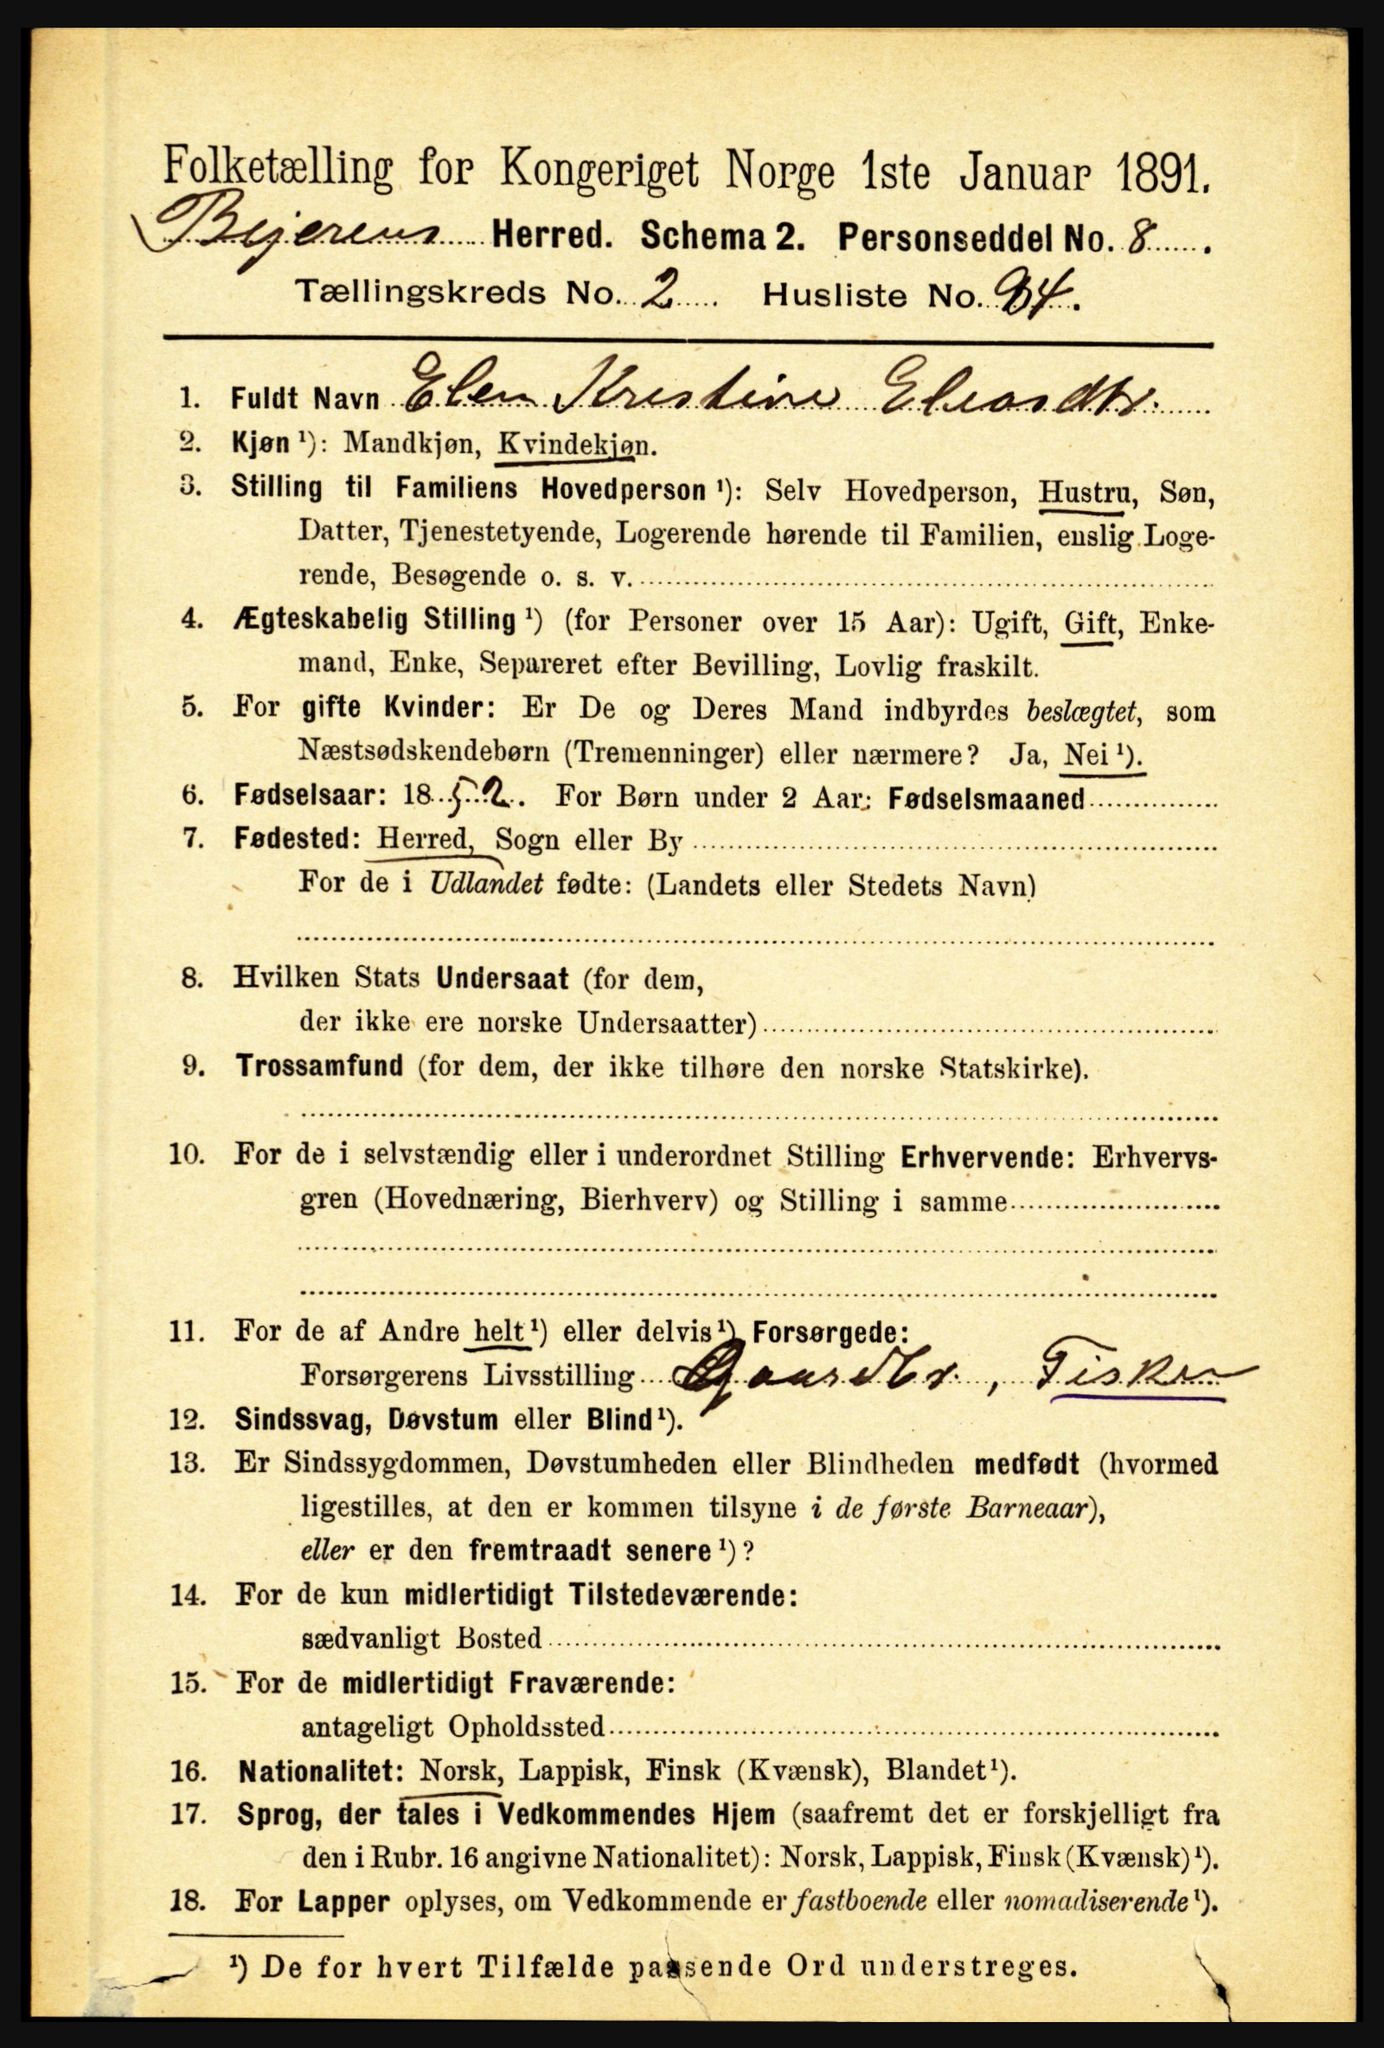 Folketælling for Kongeriget Norge 1ste Januar 1891.
Bejerens Herred. Schema 2. Personseddel No. 8.
Tællingskreds No. 2 Husliste No. 94.
1. Fuldt Navn Elen Kristine Eliasdtr.
2. Kjøn ¹): Mandkjøn, Kvindekjøn.
3. Stilling til Familiens Hovedperson ¹): Selv Hovedperson, Hustru, Søn,
Datter, Tjenestetyende, Logerende hørende til Familien, enslig Loge-
rende, Besøgende o. s. v.
4. Ægteskabelig Stilling ¹) (for Personer over 15 Aar): Ugift, Gift, Enke-
mand, Enke, Separeret efter Bevilling, Lovlig fraskilt.
5. For gifte Kvinder: Er De og Deres Mand indbyrdes beslægtet, som
Næstsødskendebørn (Tremenninger) eller nærmere? Ja, Nei ¹).
6. Fødselsaar: 1852. For Børn under 2 Aar: Fødselsmaaned
7. Fødested: Herred, Sogn eller By
For de i Udlandet fødte: (Landets eller Stedets Navn)
8. Hvilken Stats Undersaat (for dem,
der ikke ere norske Undersaatter)
9. Trossamfund (for dem, der ikke tilhøre den norske Statskirke).
10. For de i selvstændig eller i underordnet Stilling Erhvervende: Erhvervs-
gren (Hovednæring, Bierhverv) og Stilling i samme
11. For de af Andre helt ¹) eller delvis ¹) Forsørgede:
Forsørgerens Livsstilling Gaardbr., Fisker
12. Sindssvag, Døvstum eller Blind ¹).
13. Er Sindssygdommen, Døvstumheden eller Blindheden medfødt (hvormed
ligestilles, at den er kommen tilsyne i de første Barneaar),
eller er den fremtraadt senere ¹)?
14. For de kun midlertidigt Tilstedeværende:
sædvanligt Bosted
15. For de midlertidigt Fraværende:
antageligt Opholdssted
16. Nationalitet: Norsk, Lappisk, Finsk (Kvænsk), Blandet ¹).
17. Sprog, der tales i Vedkommendes Hjem (saafremt det er forskjelligt fra
den i Rubr. 16 angivne Nationalitet): Norsk, Lappisk, Finsk (Kvænsk) ¹).
18. For Lapper oplyses, om Vedkommende er fastboende eller nomadiserende ¹).
¹) De for hvert Tilfælde passende Ord understreges.